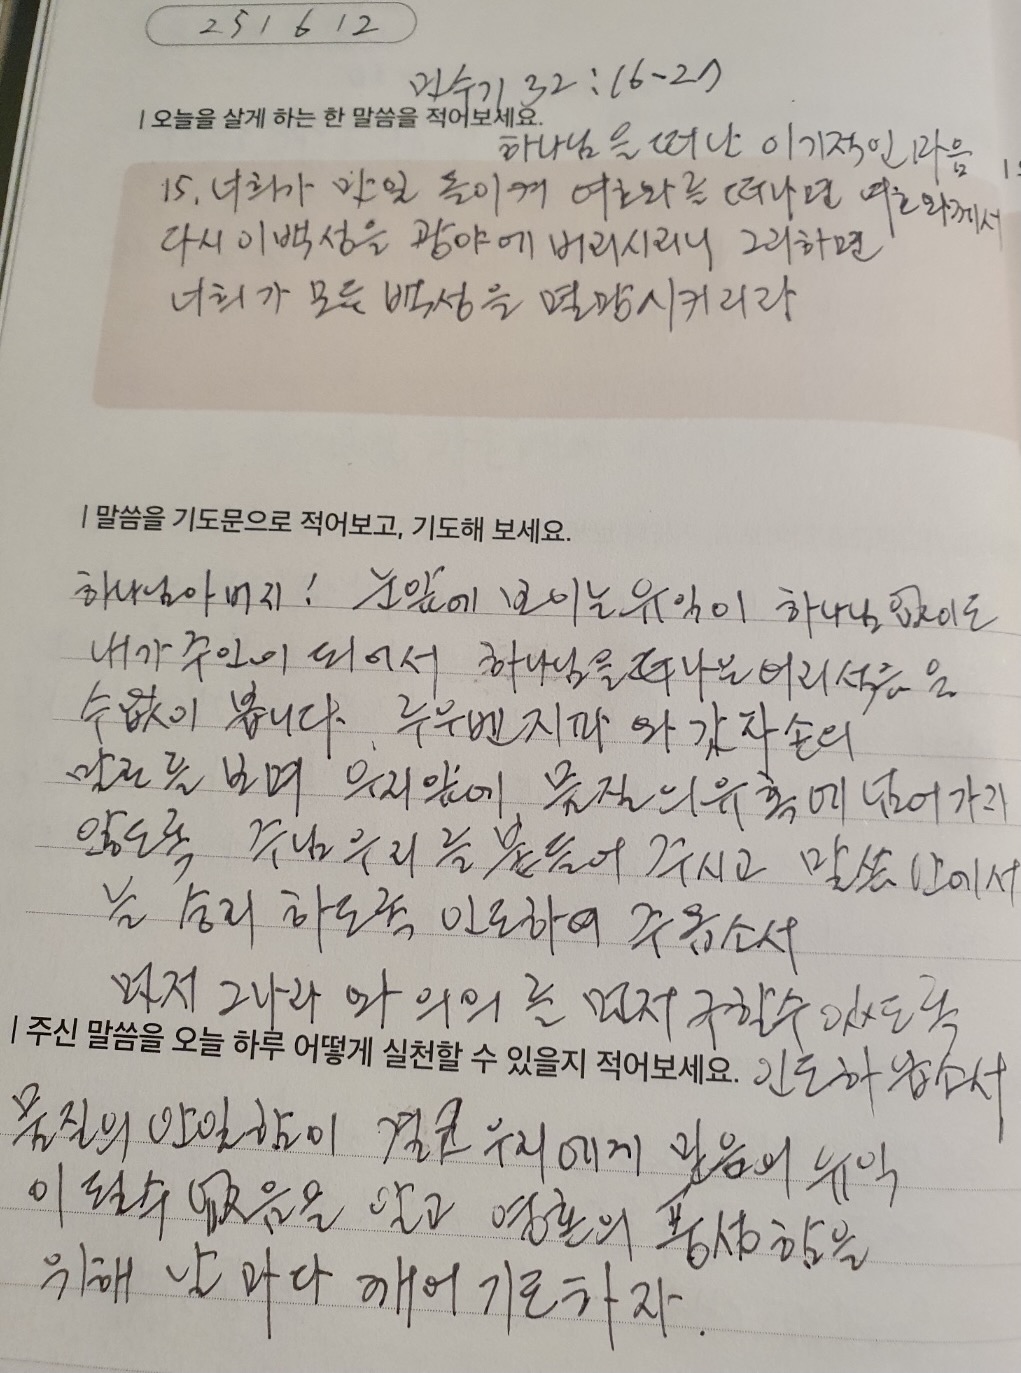 251612
민수기 32:16-27
| 오늘을 살게 하는 한 말씀을 적어보세요.
하나님을 떠난 이기적인 마음
15. 너희가 만일 돌이켜 여호와를 떠나면 여호와께서
다시 이백성을 광야에 버리시리니 그리하면
너희가 모든 백성을 멸망시키리라
| 말씀을 기도문으로 적어보고, 기도해 보세요.
하나님아버지! 눈앞에 보이는 유익이 하나님 없이도
내가 주인이 되어서 하나님을 떠나는 어리석음을
수없이 봅니다. 루우벤지파 와 갓자손의
말로를 보며 우리앞에 물질의 유혹에 넘어가지
않도록 주님 우리를 붙들어 주시고 말씀 안에서
늘 승리 하도록 인도하여 주옵소서
먼저 그나라 와 의의 를 먼저 구할수 있도록
| 주신 말씀을 오늘 하루 어떻게 실천할 수 있을지 적어보세요.
인도하옵소서
물질의 안일함이 결코 우리에게 믿음의 유익
이 될수 없음을 알고 영혼의 풍성함을
위해 날마다 깨어 기도하자.